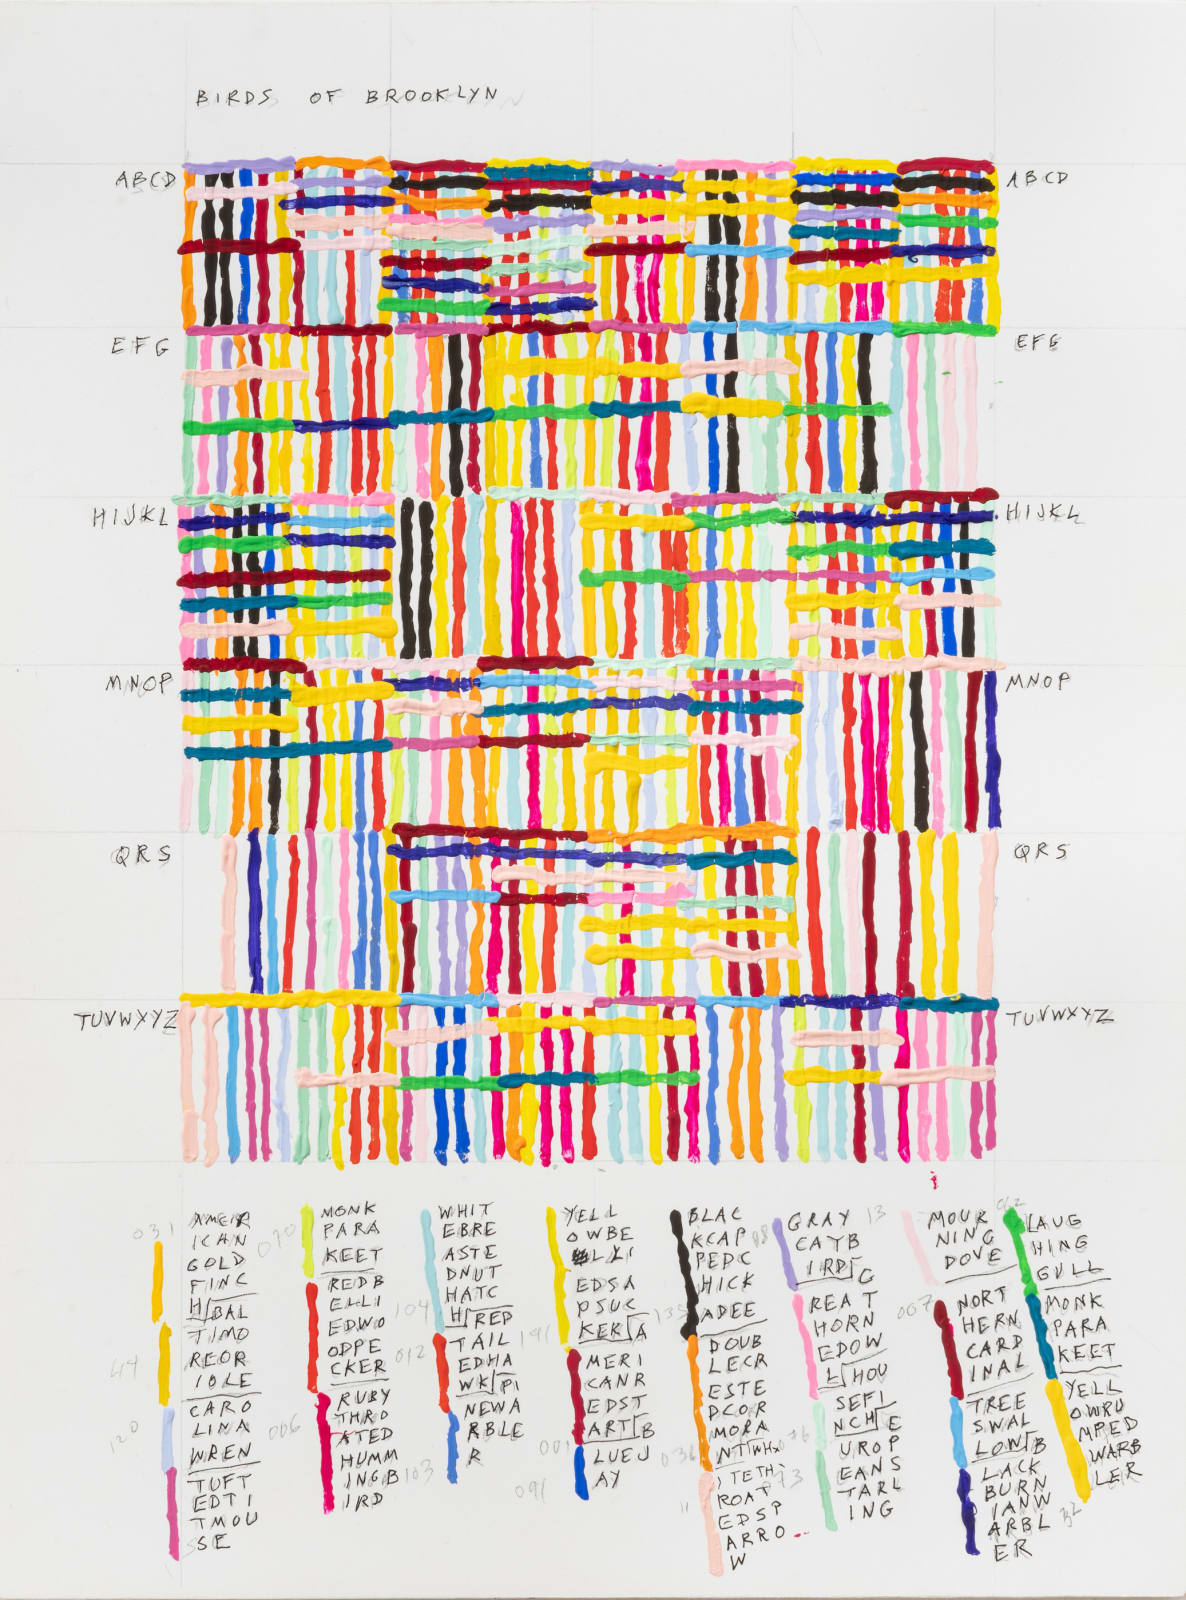 BIRDS OF BROOKLYN
ABCD ABCD
EFG EFG
HIJKL HIJKL
MNOP MNOP
QRS QRS
TUVWXYZ TUVWXYZ
031
AMER
ICAN
GOLD
FINC
H BAL
TIMO
REOR
IOLE
CARO
LINA
WREN
TUFT
EDTI
TMOU
SE
44
120
070
MONK
PARA
KEET
REDB
ELLI
EDWO
ODPE
CKER
RUBY
THRO
ATED
HUMM
INGB
IRD
006
WHIT
EBRE
ASTE
DNUT
HATC
H RED
TAIL
EDHA
WK PI
NEWA
RBLE
R
104
012
103
YELL
OWBE
LLI
EDSA
PSUC
KER A
MERI
CANR
EDST
ART B
LUEJ
AY
191
001
091
BLAC
KCAP
PEDC
HICK
ADEE
DOUB
LECR
ESTE
DCOR
MORA
NT WH
ITETH
ROAT
EDSP
ARRO
W
135
036
11
GRAY
CATB
IRD G
REAT
HORN
EDOW
L HOU
SEFI
NCH E
UROP
EANS
TARL
ING
13
MOUR
NING
DOVE
NORT
HERN
CARD
INAL
TREE
SWAL
LOW B
LACK
BURN
IANW
ARBL
ER
007
LAUG
HING
GULL
MONK
PARA
KEET
YELL
OWRU
MPED
WARB
LER
32